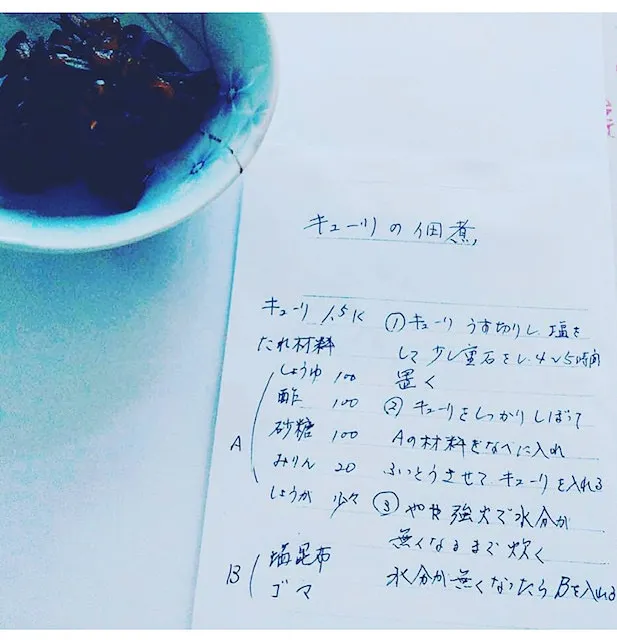 キューリの佃煮
キューリ 1.5K
たれ材料
A
しょうゆ 100
酢 100
砂糖 100
みりん 20
しょうが 少々
B
塩昆布
ゴマ
①キューリうす切りし、塩を
して少し重石をし4〜5時間
置く
② キューリをしっかりしぼって
Aの材料をなべに入れ
ふっとうさせてキューリを入れる
③ やや強火で水分が
無くなるまで炊く
水分が無くなったらBを入れる